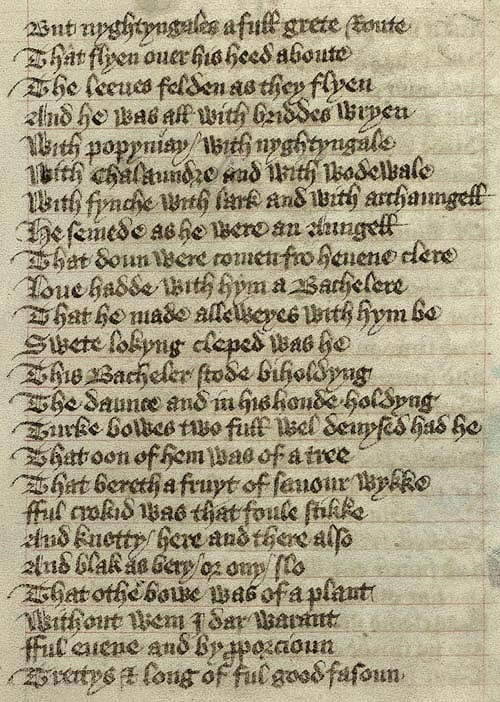 But nyghtyngales a full grete Route
That flyen ouer his heed aboute
The leeues felden as they flyen
And he was all with briddes wryen
With popyniay / with nyghtyngale
With Chalaundre and with wodewale
With fynche with lark and with archaungell
He semede as he were an Aungell
That doun were comen fro heuene clere
Loue hadde with hym a Bachelere
That he made alleweyes with hym be
Swete lokyng cleped was he
This Bacheler stode biholdyng
The daunce and in his honde holdyng
Turke bowes two full wel deuysed had he
That oon of hem was of a tree
That bereth a fruyt of sauour wykke
fful crokid was that foule stikke
And knotty / here and there also
And blak as bery / or ony / slo
That othe bowe was of a plant
Without wem I dar warant
fful euene and by ꝓporcioun
Trettys & long of ful good fasoun